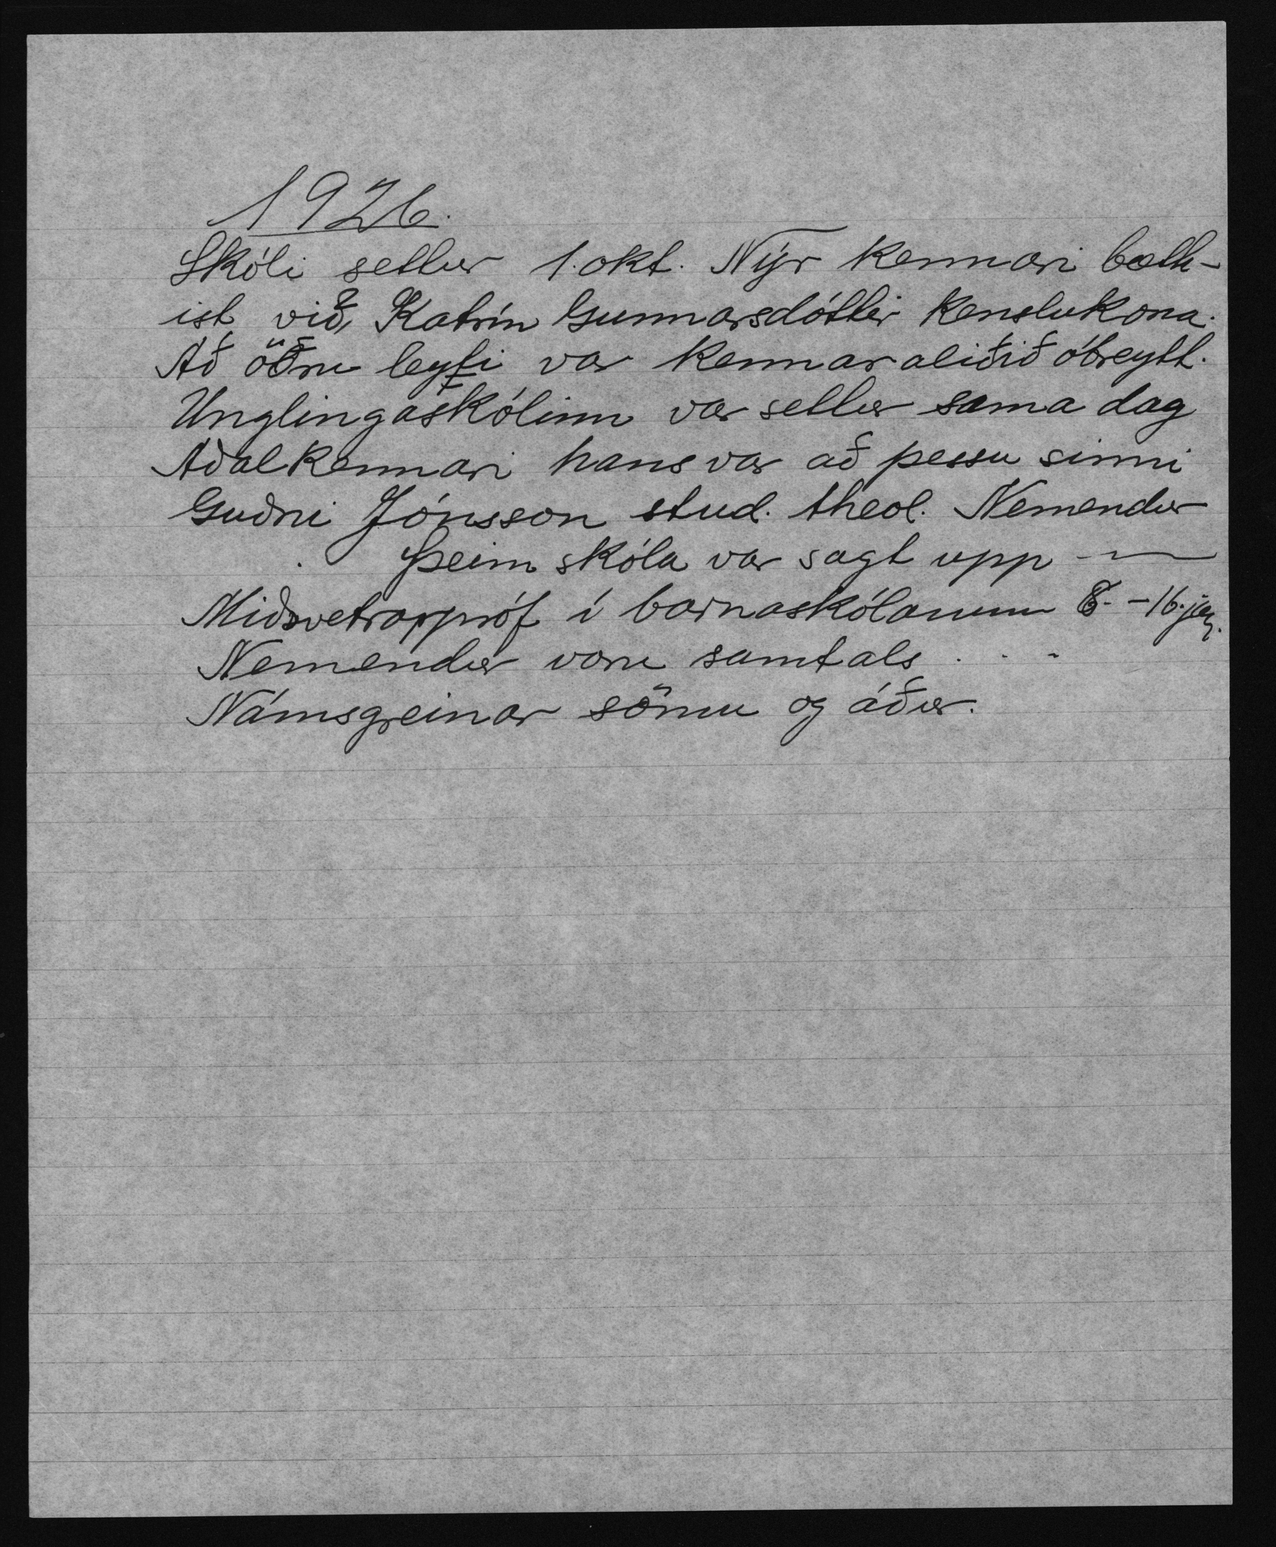 1926.
Skóli settur 1. okt. Nýr kennari bætt-
ist við, Katrín Gunnarsdóttir kenslukona.
Að öðru leyti var kennaraliðið óbreytt.
Unglingaskólinn var settur sama dag
Aðalkennari hans var að þessu sinni
Guðni Jónsson stud. theol. Nemendur
. Þeim skóla var sagt upp —
Miðsvetrarpróf í barnaskólanum 8. – 16. jan.
Nemendur voru samtals . . -
Námsgreinar sömu og áður.